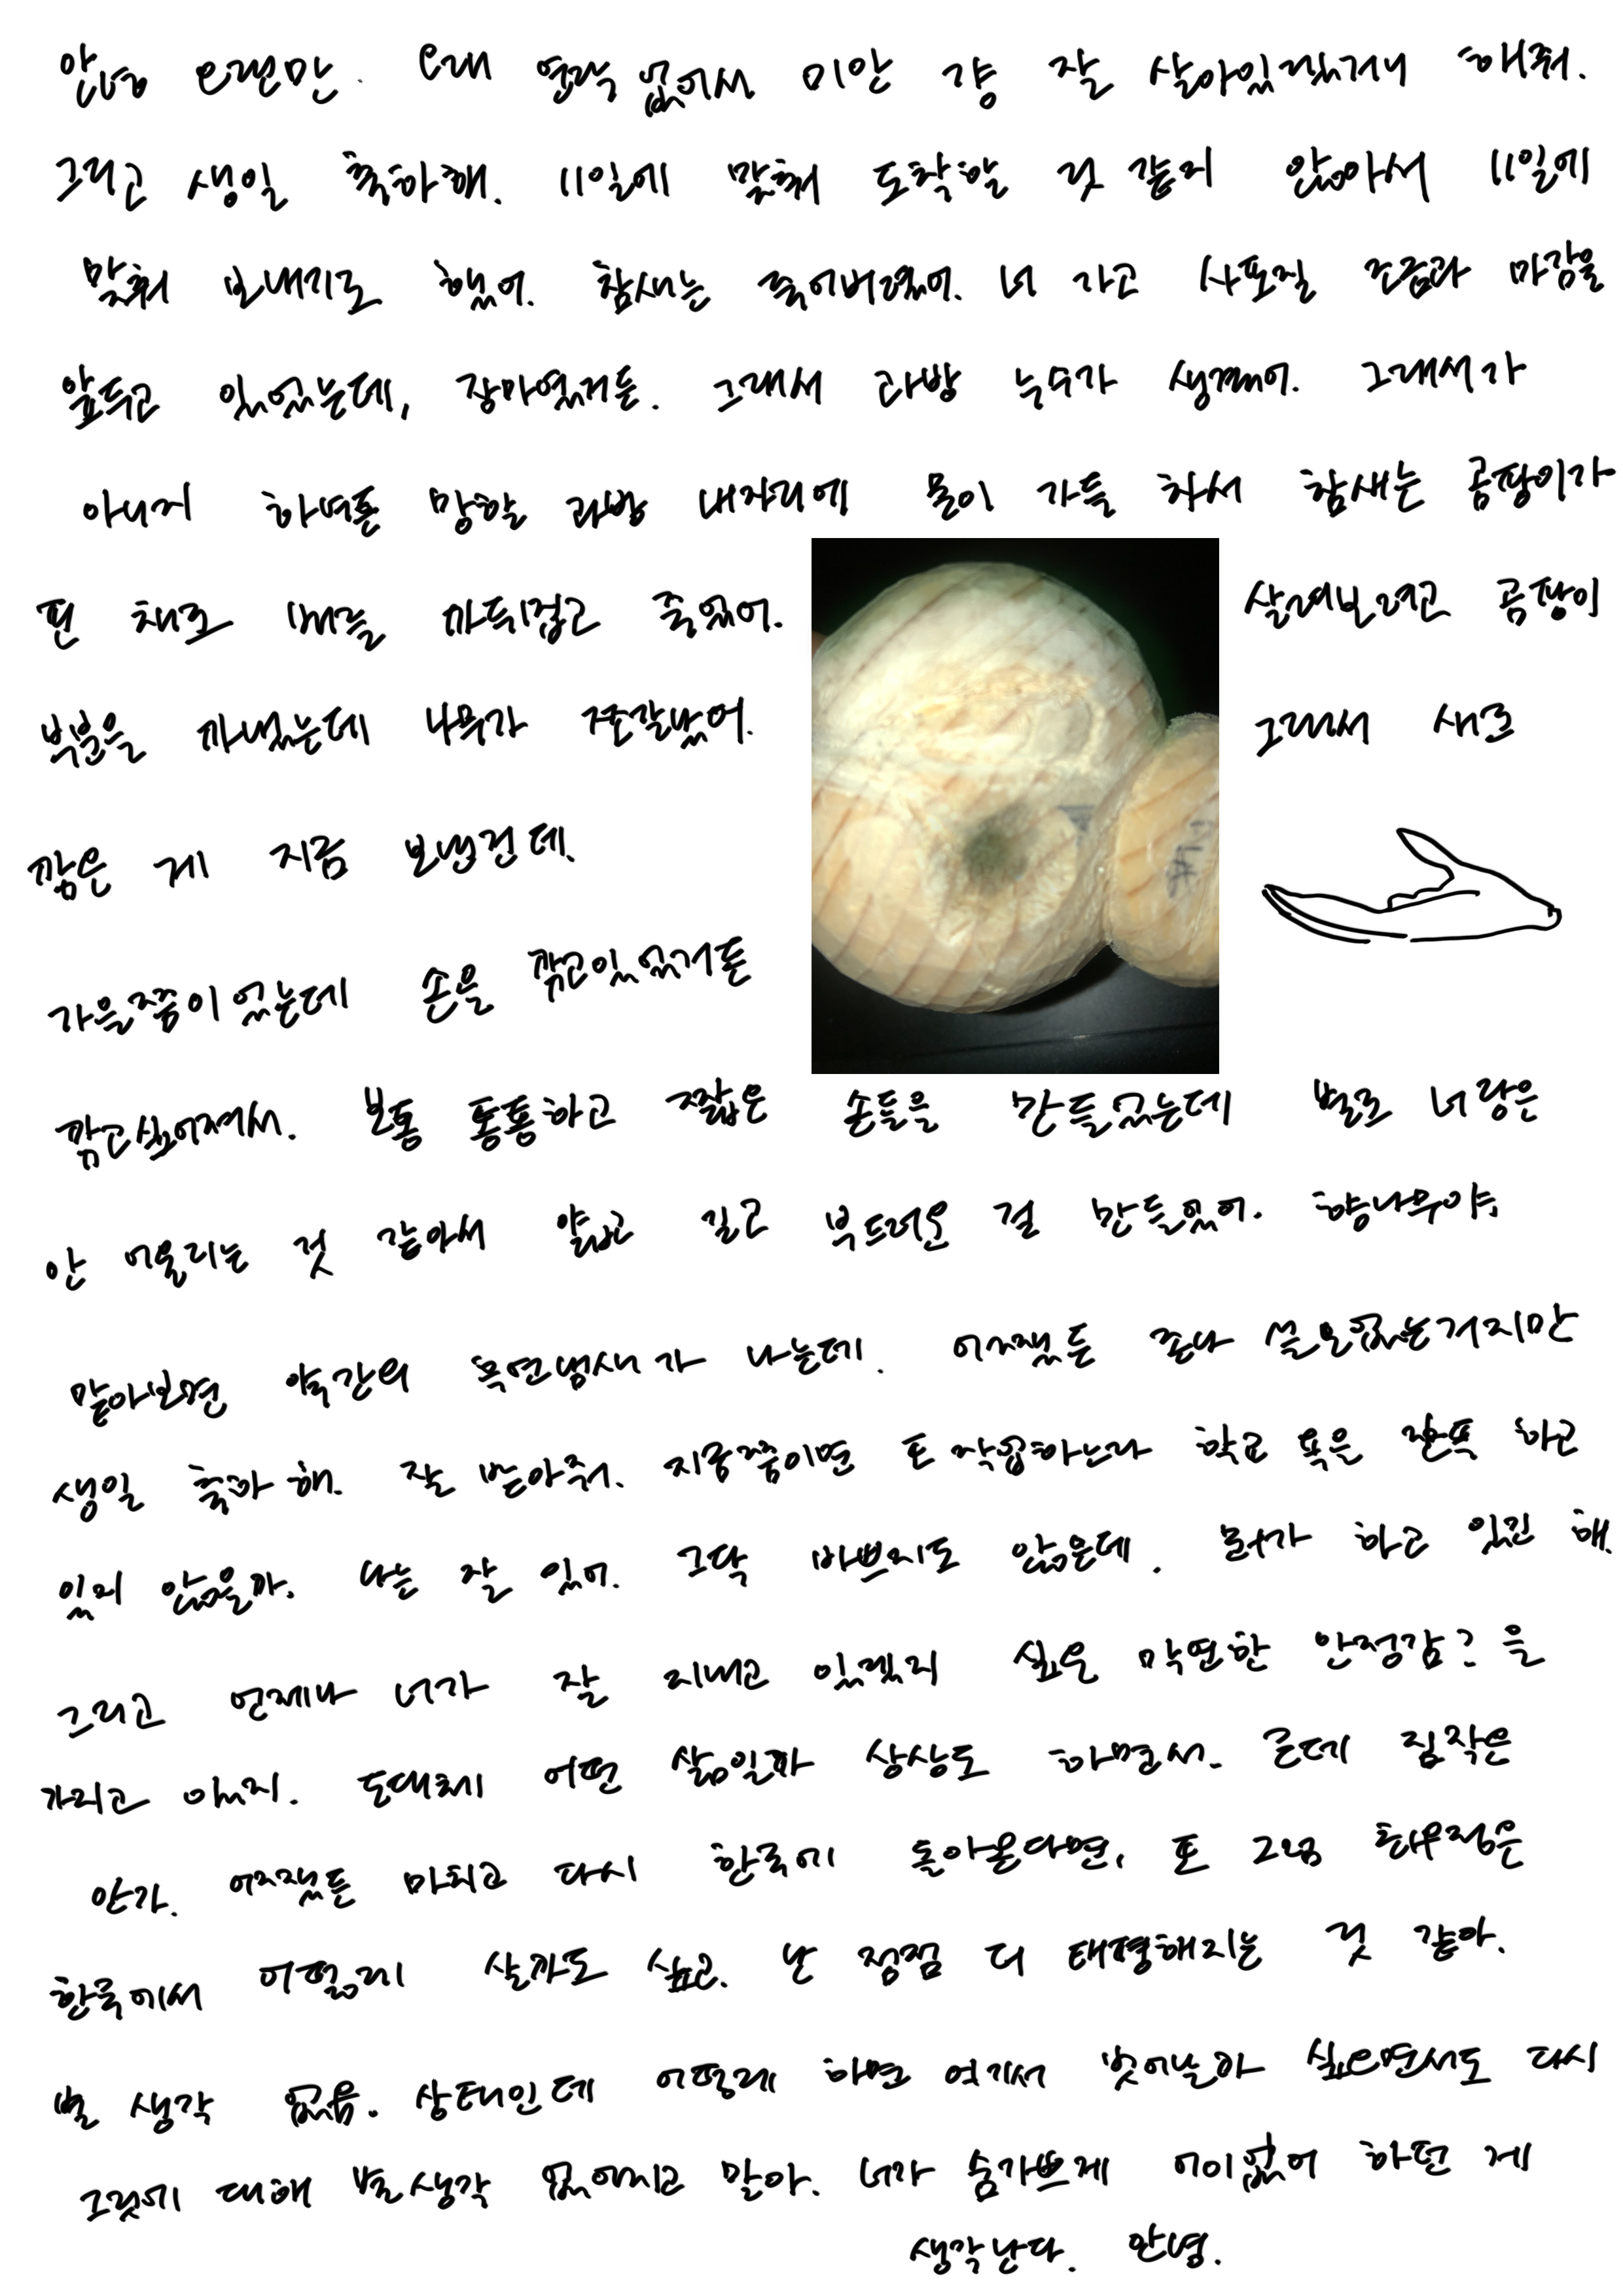 안녕 오랜만. 오래 연락 없어서 미안 걍 잘 살아있겠거니 해줘.
그리고 생일 축하해. 11일에 맞춰 도착할 것 같지 않아서 11일에
맞춰 보내기로 했어. 참새는 죽어버렸어. 너 가고 사포질 조금과 마감을
앞두고 있었는데, 장마였거든. 그래서 과방 누수가 생겼어. 그래서가
아니지 하여튼 망할 과방 내자리에 물이 가득 차서 참새는 곰팡이가
핀 채로 배를 까뒤집고 죽었어. 살려보려고 곰팡이
부분을 까냈는데 나무가 조각났어. 그래서 새로
깎은 게 지금 보낸건데.
가을쯤이었는데 손을 깎고있었거든
깎고싶어져서. 보통 통통하고 짧은 손들을 만들었는데 별로 너랑은
안 어울리는 것 같아서 얇고 길고 부드러운 걸 만들었어. 향나무야.
맡아보면 약간의 목연냄새가 나는데. 어쨌든 존나 쓸모없는거지만
생일 축하해. 잘 받아줘. 지금쯤이면 또 작업하느라 학교 욕은 잔뜩 하고
있지 않을까. 나는 잘 있어. 그닥 바쁘지도 않은데. 뭔가 하고 있긴 해.
그리고 언제나 너가 잘 지내고 있겠지 싶은 막연한 안정감? 을
가지고 있지. 도대체 어떤 삶일까 상상도 하면서. 근데 짐작은
안가. 어쨌든 마치고 다시 한국에 돌아온다면, 또 그럼 최우정은
한국에서 어떻게 살까도 싶고. 난 점점 더 태평해지는 것 같아.
별 생각 없음. 상태인데 어떻게 하면 여기서 벗어날까 싶으면서도 다시
그것에 대해 별생각 없어지고 말아. 너가 숨가쁘게 어이없어 하던 게
생각난다. 안녕.